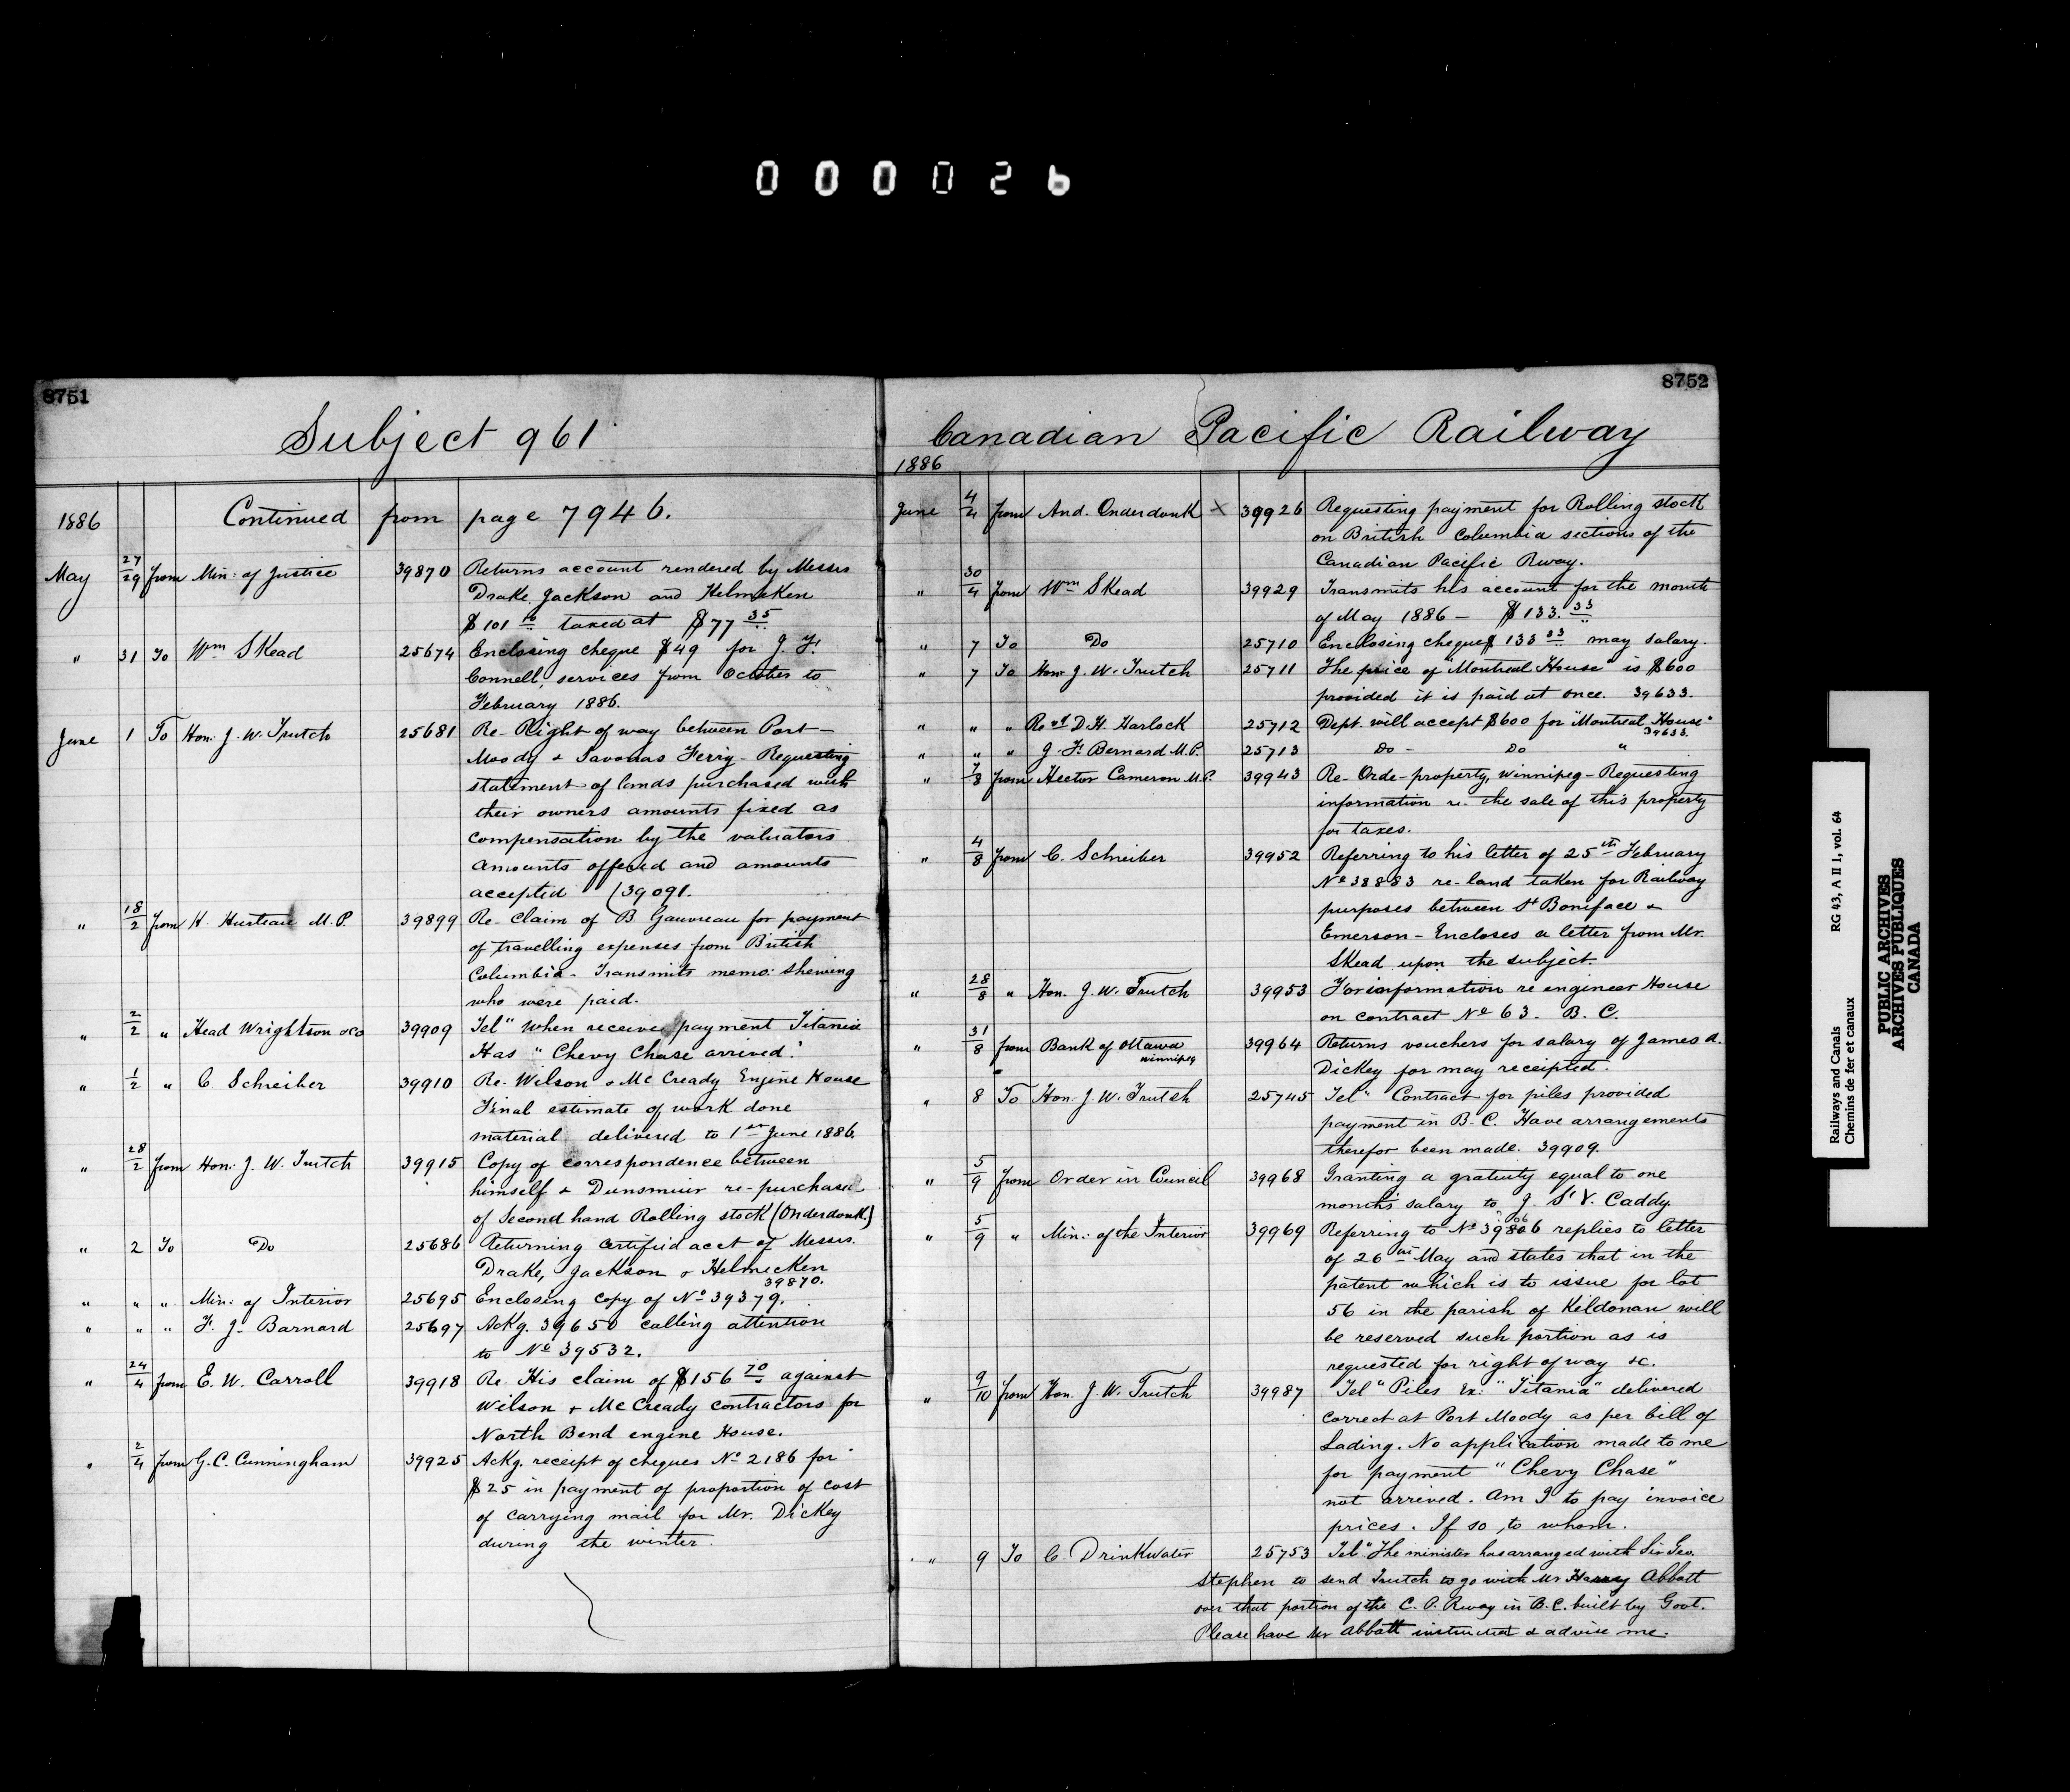 000026
8751
Subject 961
1886 Continued from page 7946.
May 27/29 from Min: of Justice 39870 Returns account rendered by Messrs
Drake, Jackson and Helmcken
$101 taxed at $77 35
" 31 To Wm Skead 25674 Enclosing cheque $49 for J. F.
Connell, services from October to
February 1886.
June 1 To Hon: J. W. Trutch 25681 Re- Right of way between Port-
Moody & Savonas Ferry - Requesting
statement of lands purchased with
their owners amounts fixed as
compensation by the valuators
amounts offered and amounts
accepted (39091.
" 18/2 from H. Hurteau M.P. 39899 Re- Claim of B Gauvreau for payment
of travelling expenses from British
Columbia - Transmits memo: shewing
who were paid.
" 2/2 " Head Wrightson &Co 39909 Tel " When receive payment Titania
Has " Chevy Chase arrived."
" 1/2 " C. Schreiber 39910 Re- Wilson & McCready Engine House
Final estimate of work done
material delivered to 1st June 1886.
" 28/2 from Hon: J. W. Trutch 39915 Copy of correspondence between
himself & Dunsmuir re-purchase
of Second hand Rolling stock (Onderdonk.)
" 2 To Do 25686 Returning certified acct of Messrs.
Drake, Jackson & Helmcken
39870.
" " " Min: of Interior 25695 Enclosing copy of No 39379.
" " " F. J. Barnard 25697 Ackg. 39650 calling attention
to No 39532.
" 24/4 from E. W. Carroll 39918 Re. His claim of $156 70 against
Wilson & McCready contractors for
North Bend engine House.
" 2/4 from G. C. Cunningham 39925 Ackg. receipt of cheques No 2186 for
$25 in payment of proportion of cost
of carrying mail for Mr. Dickey
during the winter.
8752
Canadian Pacific Railway
1886
June 4/4 from And. Onderdonk X 39926 Requesting payment for Rolling stock
on British Columbia sections of the
Canadian Pacific Rway.
" 30/4 from Wm Skead 39929 Transmits his account for the month
of May 1886 - $133.33
" 7 To Do 25710 Enclosing cheque $133 33 may salary.
" 7 To Hon: J. W. Trutch 25711 The price of "Montreal House" is $600
provided it is paid at once. 39633.
" " " Revd D. H. Harlock 25712 Dept. will accept $600 for "Montreal House"
39633.
" " " J. F. Bernard M.P. 25713 Do - Do "
" 7/8 from Hector Cameron M.P. 39943 Re- Orde-property, Winnipeg - Requesting
information re- the sale of this property
for taxes.
" 4/8 from C. Schreiber 39952 Referring to his letter of 25th February
No 38883 re-land taken for Railway
purposes between St Boniface &
Emerson - Encloses a letter from Mr.
Skead upon the subject.
" 28/8 " Hon. J. W. Trutch 39953 For information re engineer House
on contract No 63. B. C.
" 31/8 from Bank of Ottawa 39964 Returns vouchers for salary of James A.
Winnipeg
Dickey for may receipted.
" 8 To Hon: J. W. Trutch 25745 Tel " Contract for piles provided
payment in B. C. Have arrangements
therefor been made. 39909.
" 5/9 from Order in Council 39968 Granting a gratuity equal to one
months salary to J. St V. Caddy.
" 5/9 " Min: of the Interior 39969 Referring to No 39806 replies to letter
of 26th May and states that in the
patent which is to issue for lot
56 in the parish of Kildonan will
be reserved such portion as is
requested for right of way &c.
" 9/10 from Hon. J. W. Trutch 39987 Tel " Piles Ex: " Titania" delivered
correct at Port Moody as per bill of
Lading. No application made to me
for payment " Chevy Chase"
not arrived. Am I to pay invoice
prices. If so, to whom.
" 9 To C. Drinkwater 25753 Tel " The minister has arranged with Sir Geo.
Stephen to send Trutch to go with Mr Harry Abbott
over that portion of the C. P. Rway in B.C. built by Govt.
Please have Mr Abbott instructed & advise me.
Railways and Canals RG 43, A II 1, vol. 64
Chemins de fer et canaux
PUBLIC ARCHIVES
ARCHIVES PUBLIQUES
CANADA